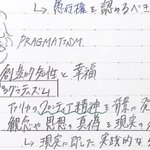 ↳ 愚行権を認めるべき
PRAGMATISM.
創造的知性と幸福
グマティズム
アメリカのフロンティア精神を背景に発
観念や思想の真偽を現実の
↳ 現実に即した実践的な